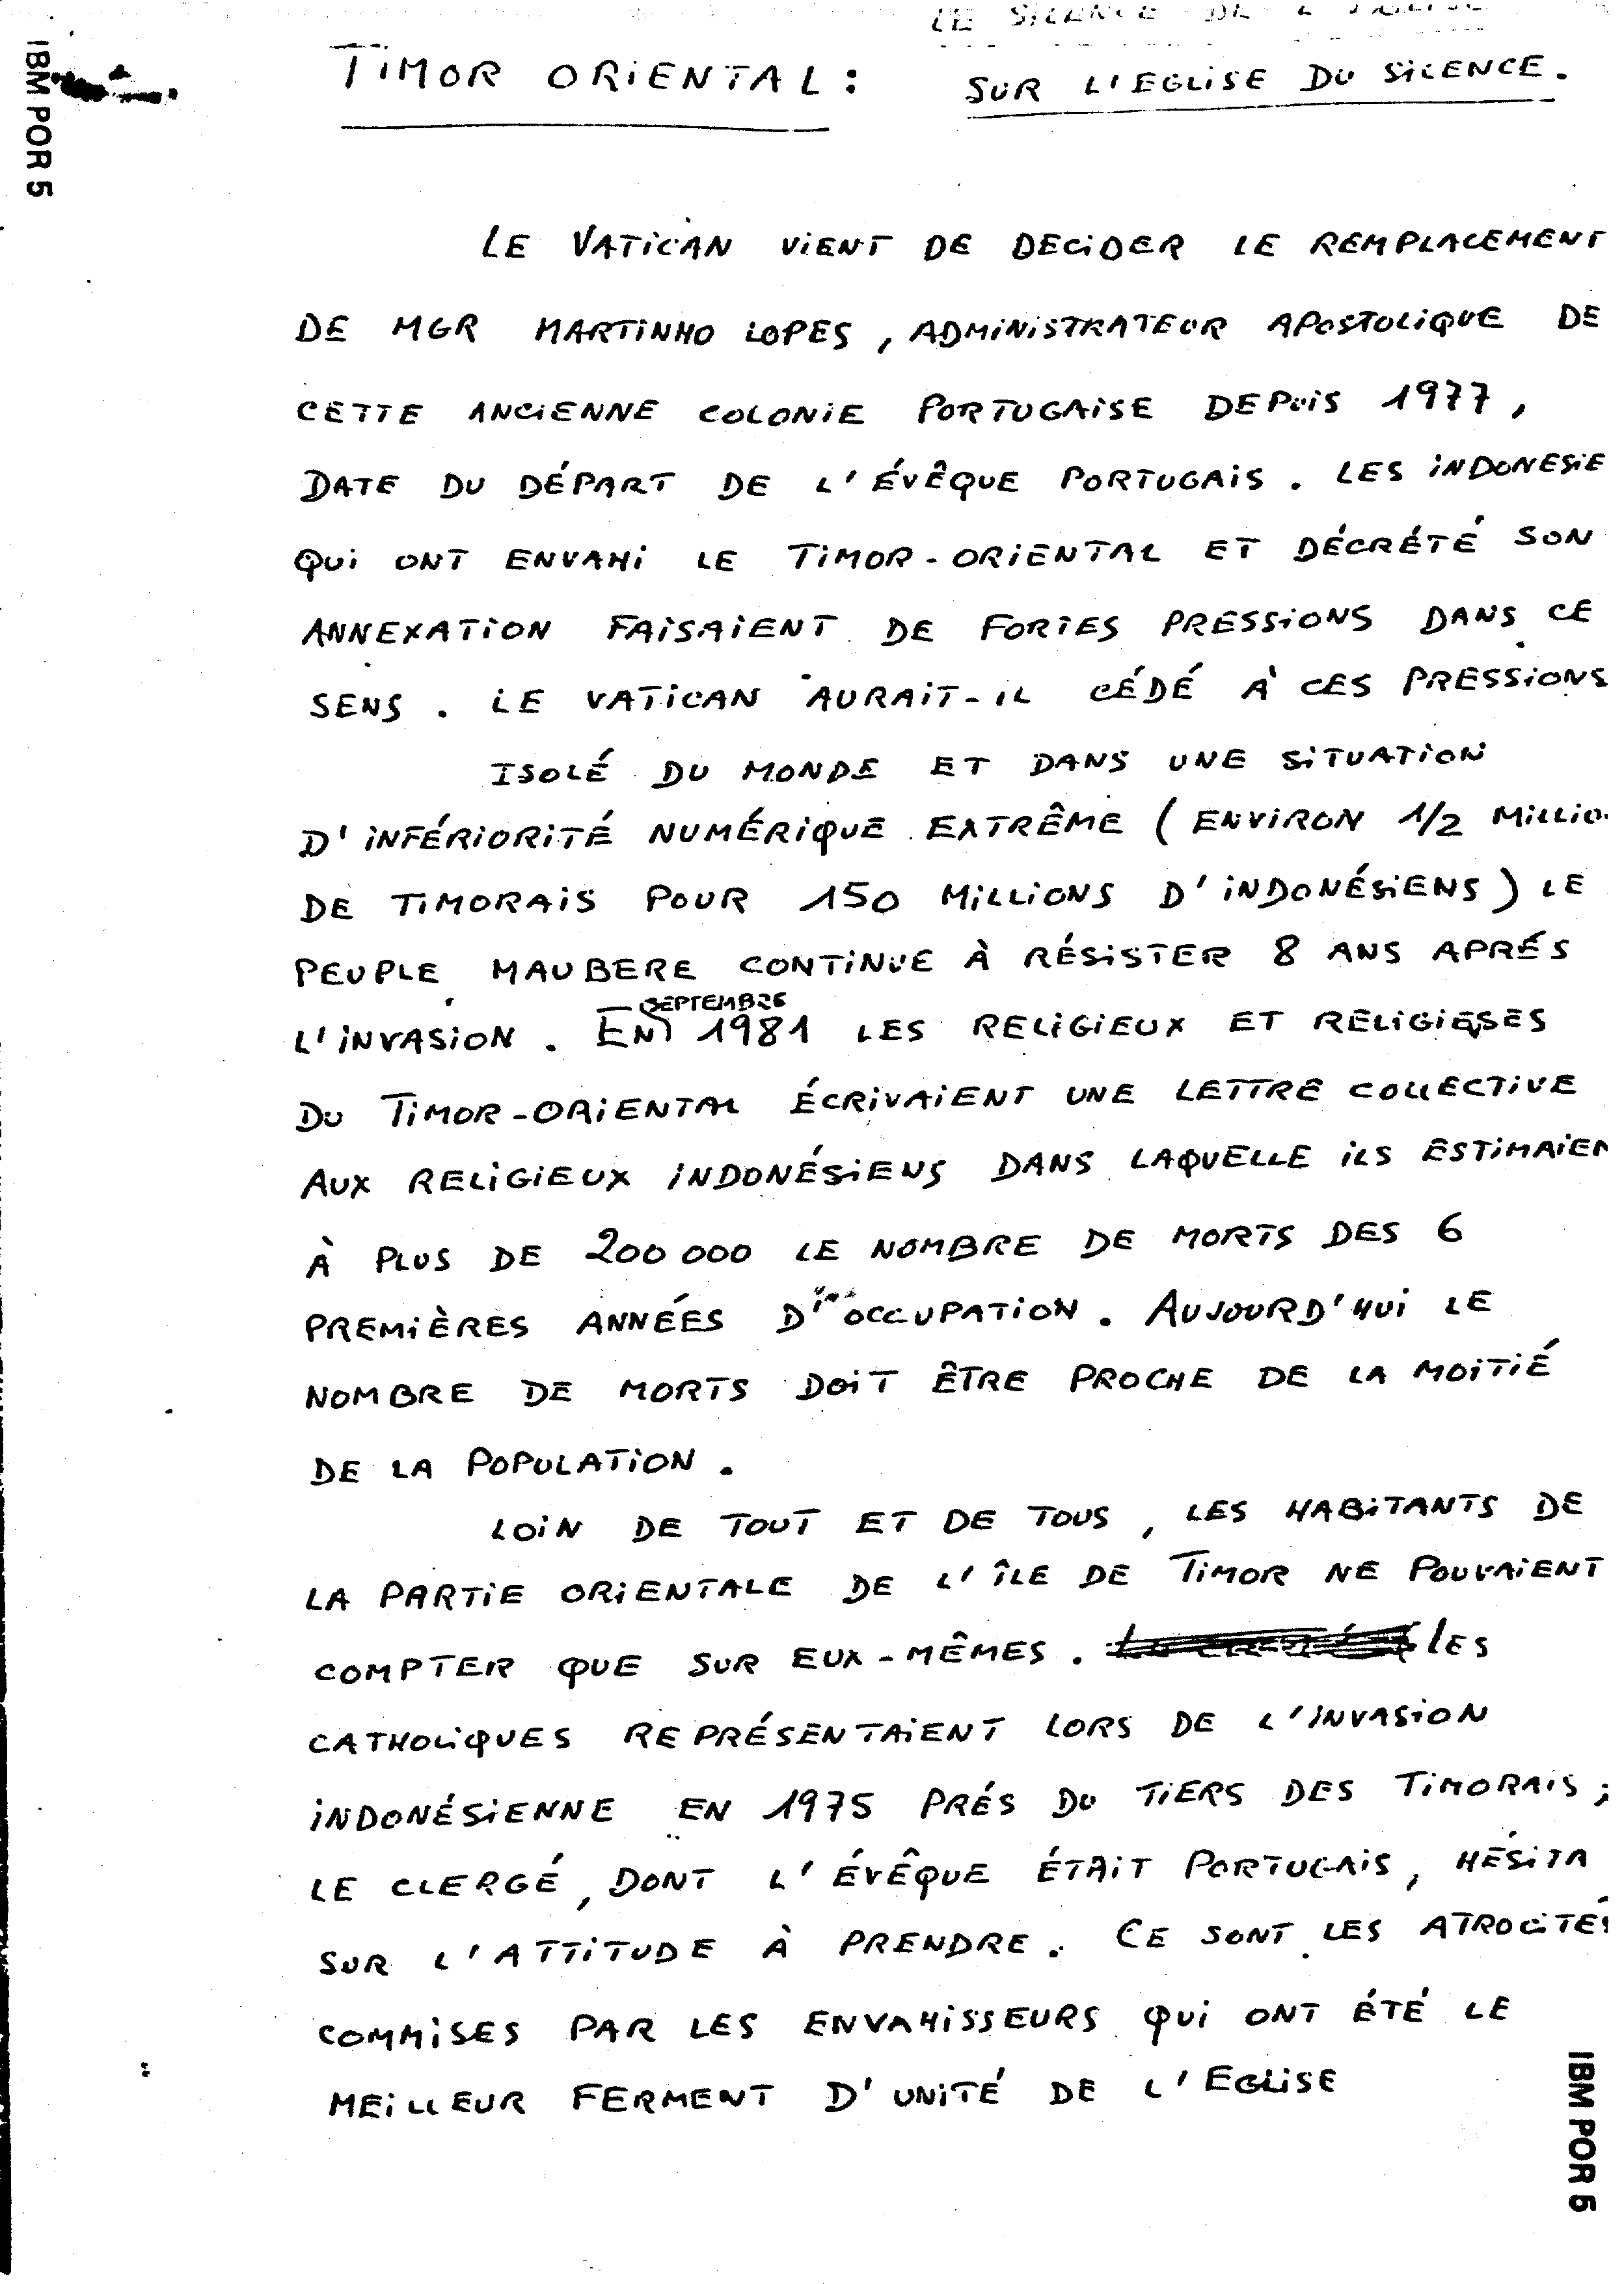 LE SILENCE DE L'EGLISE
TIMOR ORIENTAL : SUR L'EGLISE DU SILENCE.
IBM POR 5
LE VATICAN VIENT DE DECIDER LE REMPLACEMENT
DE MGR MARTINHO LOPES, ADMINISTRATEUR APOSTOLIQUE DE
CETTE ANCIENNE COLONIE PORTUGAISE DEPUIS 1977,
DATE DU DÉPART DE L'ÉVÊQUE PORTUGAIS. LES INDONESIE
QUI ONT ENVAHI LE TIMOR-ORIENTAL ET DÉCRÉTÉ SON
ANNEXATION FAISAIENT DE FORTES PRESSIONS DANS CE
SENS. LE VATICAN AURAIT-IL CÉDÉ À CES PRESSIONS
ISOLÉ DU MONDE ET DANS UNE SITUATION
D'INFÉRIORITÉ NUMÉRIQUE EXTRÊME (ENVIRON 1/2 MILLIO
DE TIMORAIS POUR 150 MILLIONS D'INDONÉSIENS) LE
PEUPLE MAUBERE CONTINUE À RÉSISTER 8 ANS APRÉS
L'INVASION. EN SEPTEMBRE 1981 LES RELIGIEUX ET RELIGIEUSES
DU TIMOR-ORIENTAL ÉCRIVAIENT UNE LETTRE COLLECTIVE
AUX RELIGIEUX INDONÉSIENS DANS LAQUELLE ILS ESTIMAIEN
À PLUS DE 200 000 LE NOMBRE DE MORTS DES 6
PREMIÈRES ANNÉES D'OCCUPATION. AUJOURD'HUI LE
NOMBRE DE MORTS DOIT ÊTRE PROCHE DE LA MOITIÉ
DE LA POPULATION.
LOIN DE TOUT ET DE TOUS, LES HABITANTS DE
LA PARTIE ORIENTALE DE L'ÎLE DE TIMOR NE POUVAIENT
COMPTER QUE SUR EUX-MÊMES. LES
CATHOLIQUES REPRÉSENTAIENT LORS DE L'INVASION
INDONÉSIENNE EN 1975 PRÉS DU TIERS DES TIMORAIS;
LE CLERGÉ, DONT L'ÉVÊQUE ÉTAIT PORTUGAIS, HÉSITA
SUR L'ATTITUDE À PRENDRE. CE SONT LES ATROCITÉS
COMMISES PAR LES ENVAHISSEURS QUI ONT ÉTÉ LE
MEILLEUR FERMENT D'UNITÉ DE L'EGLISE
IBM POR 5